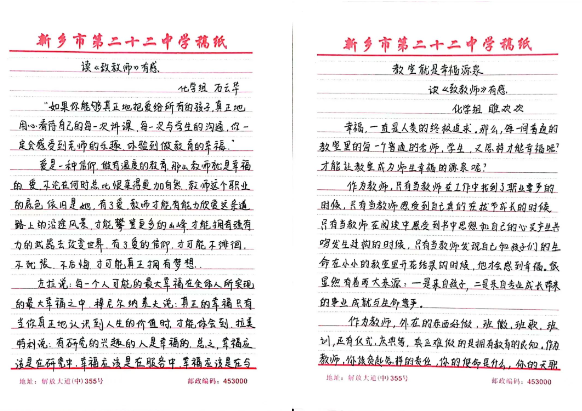 新乡市第二十二中学稿纸
读《致教师》有感
化学组 石云华
"如果你能够真正地把爱给所有的孩子,真正地
用心看待自己的每一次讲课、每一次与学生的沟通,你一
定会感受到老师的乐趣,体验到做教育的幸福。"
爱是一种信仰,做有温度的教育,那么教师就是幸福
的。爱,不论在何时总比恨来得更加自然,教师这个职业
的底色依旧是她,有了爱,教师才能有能力欣赏这条道
路上的沿途风景,才能攀登更多的山峰,才能拥有强有
力的武器去改变世界,有了爱的信仰,才可能不徘徊、
不犹疑、不后悔,才可能真正拥有梦想。
左拉说:每一个人可能的最大幸福在全体人所实现
的最大幸福之中。穆尼尔纳素夫说:真正的幸福只有
当你真正地认识到人生的价值时,才能体会到。拉美
特利说:有研究的兴趣的人是幸福的。总之,幸福应
该是在研究中,幸福应该是在服务中,幸福应该是在与
地址:解放大道(中)355号 邮政编码:453000
新乡市第二十二中学稿纸
教室就是幸福源泉
读《致教师》有感
化学组 欢欢
幸福,一直是人类的终极追求,那么,每一间普通的
教室里的每一个普通的老师,学生,又怎样才能幸福呢?
才能让教室成为师生幸福的源泉呢?
作为教师,只有当教师在工作中找到了职业尊严的
时候,只有当教师感受到自己真的在被学生成长的时候,
只有当教师在阅读中感受到书中思想和自己的心灵产生共
鸣发生结构的时候,只有当教师发现自己和孩子们的生
命在小小的教室里开花结果的时候,他才会感到幸福。低
是他有着两大来源:一是来自孩子,二是来自专业成长带来
的事业成就与生命尊严。
作为教师,外在的东西好做,班徽、班歌、班
训,正有仪式,庆典等,真正难做的是拥有教育的良知,作为
教师,你该负起怎样的责任,你的使命是什么,你的天职
地址:解放大道(中)355号 邮政编码:453000